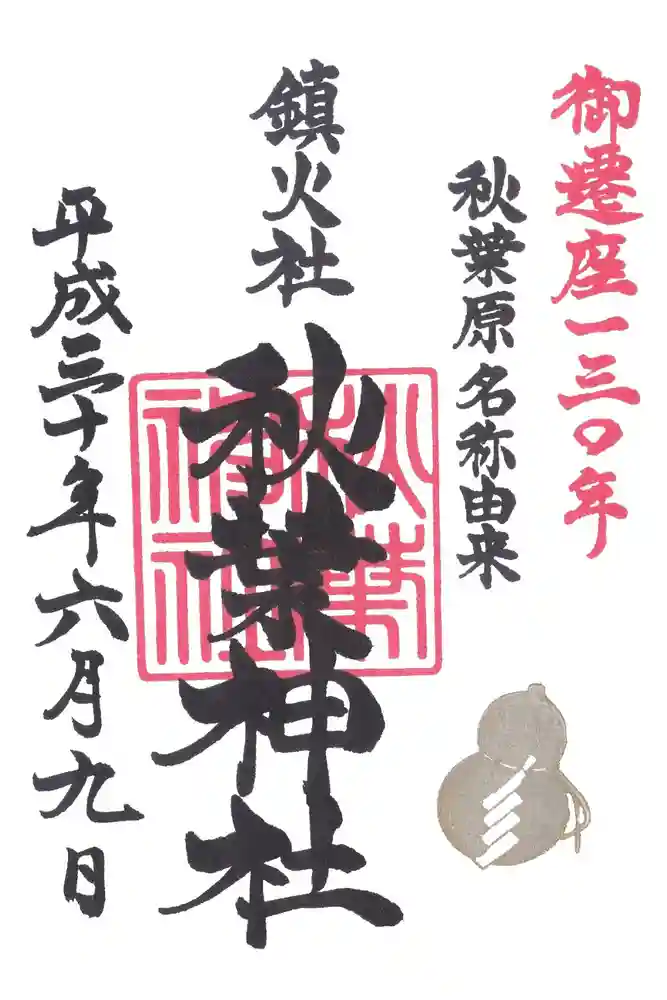 御遷座一三〇年
秋葉原名称由来
鎮火社
秋葉神社
平成三十年六月九日